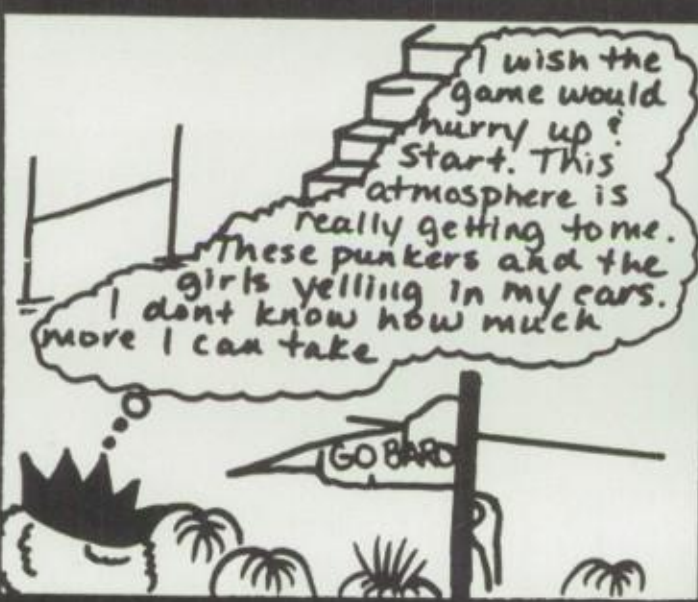 I wish the
game would
hurry up &
start. This
atmosphere is
really getting to me.
These punkers and the
girls yelling in my ears.
I dont know how much
more I can take
GO BARD